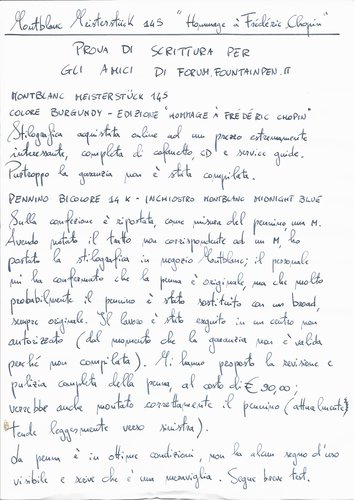 Montblanc Meisterstück 145 "Hommage à Frédéric Chopin"
PROVA DI SCRITTURA PER
GLI AMICI DI FORUM.FOUNTAINPEN.IT
MONTBLANC MEISTERSTÜCK 145
COLORE BURGUNDY - EDIZIONE "HOMMAGE À FRÉDÉRIC CHOPIN"
Stilografica acquistata online ad un prezzo estremamente
interessante, completa di cofanetto, CD e service guide.
Purtroppo la garanzia non è stata compilata.
PENNINO BICOLORE 14 K - INCHIOSTRO MONTBLANC MIDNIGHT BLUE
Sulla confezione è riportata, come misura del pennino, una M.
Avendo notato il tratto non corrispondente ad un M, ho
portato la stilografica in negozio Montblanc; il personale
mi ha confermato che la penna è originale, ma che molto
probabilmente il pennino è stato sostituito con un broad,
sempre originale. Il lavoro è stato eseguito in un centro non
autorizzato (dal momento che la garanzia non è valida
perché non compilata). Mi hanno proposto la revisione e
pulizia completa della penna, al costo di € 90,00;
verrebbe anche montato correttamente il pennino (attualmente
tende leggermente verso sinistra).
La penna è in ottime condizioni, non ha alcun segno d'uso
visibile e scrive che è una meraviglia. Segue breve test.